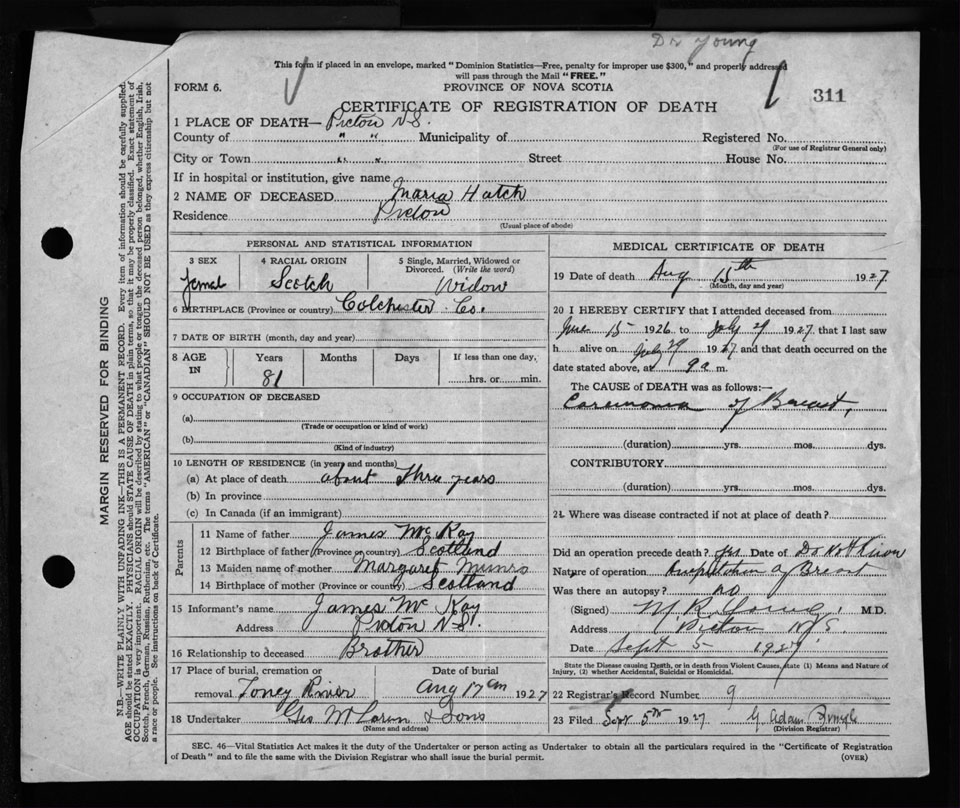 Dr Young
This form if placed in an envelope, marked "Dominion Statistics—Free, penalty for improper use $300," and properly addressed
will pass through the Mail "FREE."
FORM 6.
PROVINCE OF NOVA SCOTIA
311
CERTIFICATE OF REGISTRATION OF DEATH
1 PLACE OF DEATH— Pictou N.S.
County of " " Municipality of Registered No.
(For use of Registrar General only)
City or Town " " Street House No.
If in hospital or institution, give name
2 NAME OF DECEASED Maria Hatch
Residence Pictou
(Usual place of abode)
PERSONAL AND STATISTICAL INFORMATION
3 SEX 4 RACIAL ORIGIN 5 Single, Married, Widowed or Divorced. (Write the word)
Femal Scotch Widow
6 BIRTHPLACE (Province or country) Colchester Co.
7 DATE OF BIRTH (month, day and year)
8 AGE IN Years Months Days If less than one day,
81 hrs. or min.
9 OCCUPATION OF DECEASED
(a)
(Trade or occupation or kind of work)
(b)
(Kind of industry)
10 LENGTH OF RESIDENCE (in years and months)
(a) At place of death about three years
(b) In province
(c) In Canada (if an immigrant)
Parents
11 Name of father James McKay
12 Birthplace of father (Province or country) Scotland
13 Maiden name of mother Margaret Munro
14 Birthplace of mother (Province or country) Scotland
15 Informant's name James McKay
Address Pictou N.S.
16 Relationship to deceased Brother
17 Place of burial, cremation or Date of burial
removal. Toney River Aug 17 1927
18 Undertaker Geo McLaren & Sons
(Name and address)
MEDICAL CERTIFICATE OF DEATH
19 Date of death Aug 15th 1927
(Month, day and year)
20 I HEREBY CERTIFY that I attended deceased from
June 15 1926 to July 29 1927, that I last saw
h alive on July 29 1927 and that death occurred on the
date stated above, at 9 a m.
The CAUSE of DEATH was as follows:—
of Breast.
(duration) yrs. mos. dys.
CONTRIBUTORY
(duration) yrs. mos. dys.
21. Where was disease contracted if not at place of death?
Did an operation precede death? yes Date of Do not know
Nature of operation Amputation of Breast
Was there an autopsy? no
(Signed) M R Young M.D.
Address Pictou N.S.
Date Sept 5 1927
State the Disease causing Death, or in death from Violent Causes, state (1) Means and Nature of
Injury, (2) whether Accidental, Suicidal or Homicidal.
22 Registrar's Record Number 9
23 Filed Sept 5th 1927 G Adam
(Division Registrar)
SEC. 46—Vital Statistics Act makes it the duty of the Undertaker or person acting as Undertaker to obtain all the particulars required in the "Certificate of Registration
of Death" and to file the same with the Division Registrar who shall issue the burial permit. (OVER)
MARGIN RESERVED FOR BINDING
N.B.—WRITE PLAINLY WITH UNFADING INK—THIS IS A PERMANENT RECORD. Every item of information should be carefully supplied.
AGE should be stated EXACTLY. PHYSICIANS should STATE CAUSE OF DEATH in plain terms, so that it may be properly classified. Exact statement of
OCCUPATION is very important. RACIAL ORIGIN will be described by stating to what people or tongue the deceased person belonged, whether English, Irish,
Scotch, French, German, Russian, Ruthenian, etc. The terms "AMERICAN" or "CANADIAN" SHOULD NOT BE USED as they express citizenship but not
a race or people. See instructions on back of Certificate.